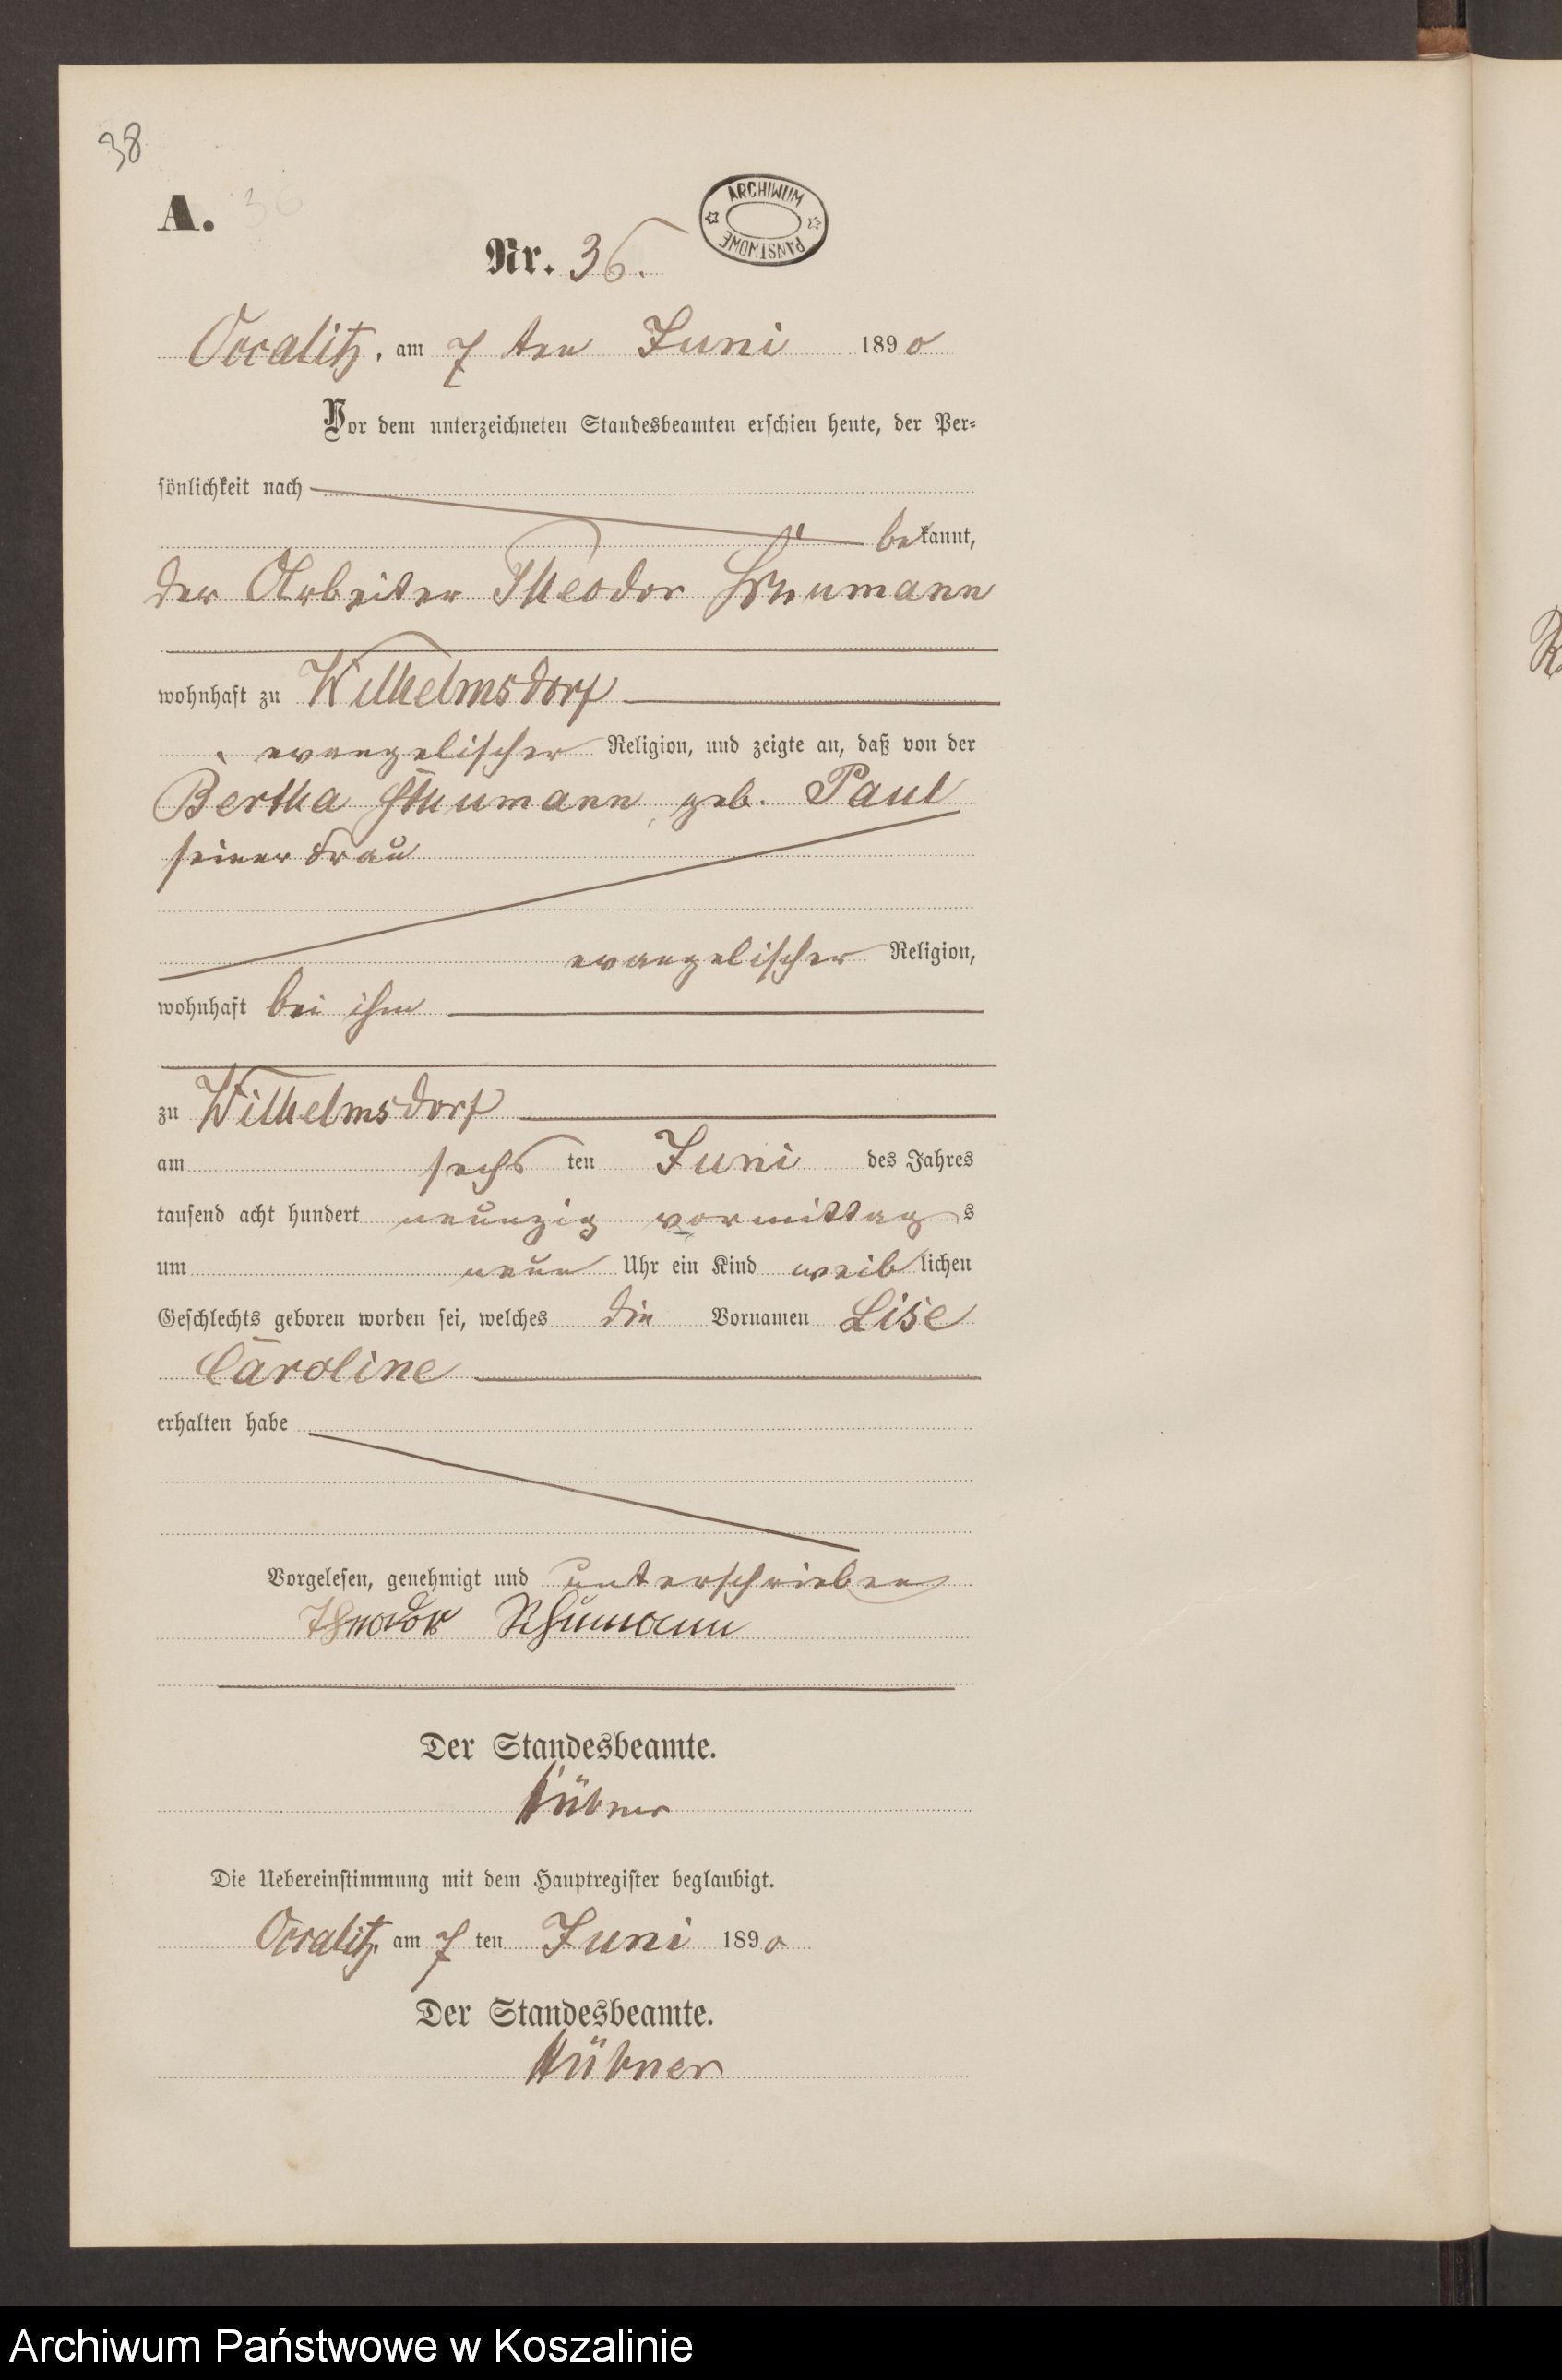 38
A. 36
ARCHIWUM PAŃSTWOWE
Nr. 36.
Occalitz, am 7 ten Juni 1890
Vor dem unterzeichneten Standesbeamten erschien heute, der Per-
sönlichkeit nach
bekannt,
der Arbeiter Theodor Schumann
wohnhaft zu Wilhelmsdorf
evangelischer Religion, und zeigte an, daß von der
Bertha Schumann, geb. Paul
seiner Frau
evangelischer Religion,
wohnhaft bei ihm
zu Wilhelmsdorf
am sechs ten Juni des Jahres
tausend acht hundert neunzig vormittags
um neun Uhr ein Kind weiblichen
Geschlechts geboren worden sei, welches die Vornamen Lise
Caroline
erhalten habe
Vorgelesen, genehmigt und unterschrieben
Theodor Schumann
Der Standesbeamte.
Hübner
Die Uebereinstimmung mit dem Hauptregister beglaubigt.
Occalitz, am 7 ten Juni 1890
Der Standesbeamte.
Hübner
Archiwum Państwowe w Koszalinie